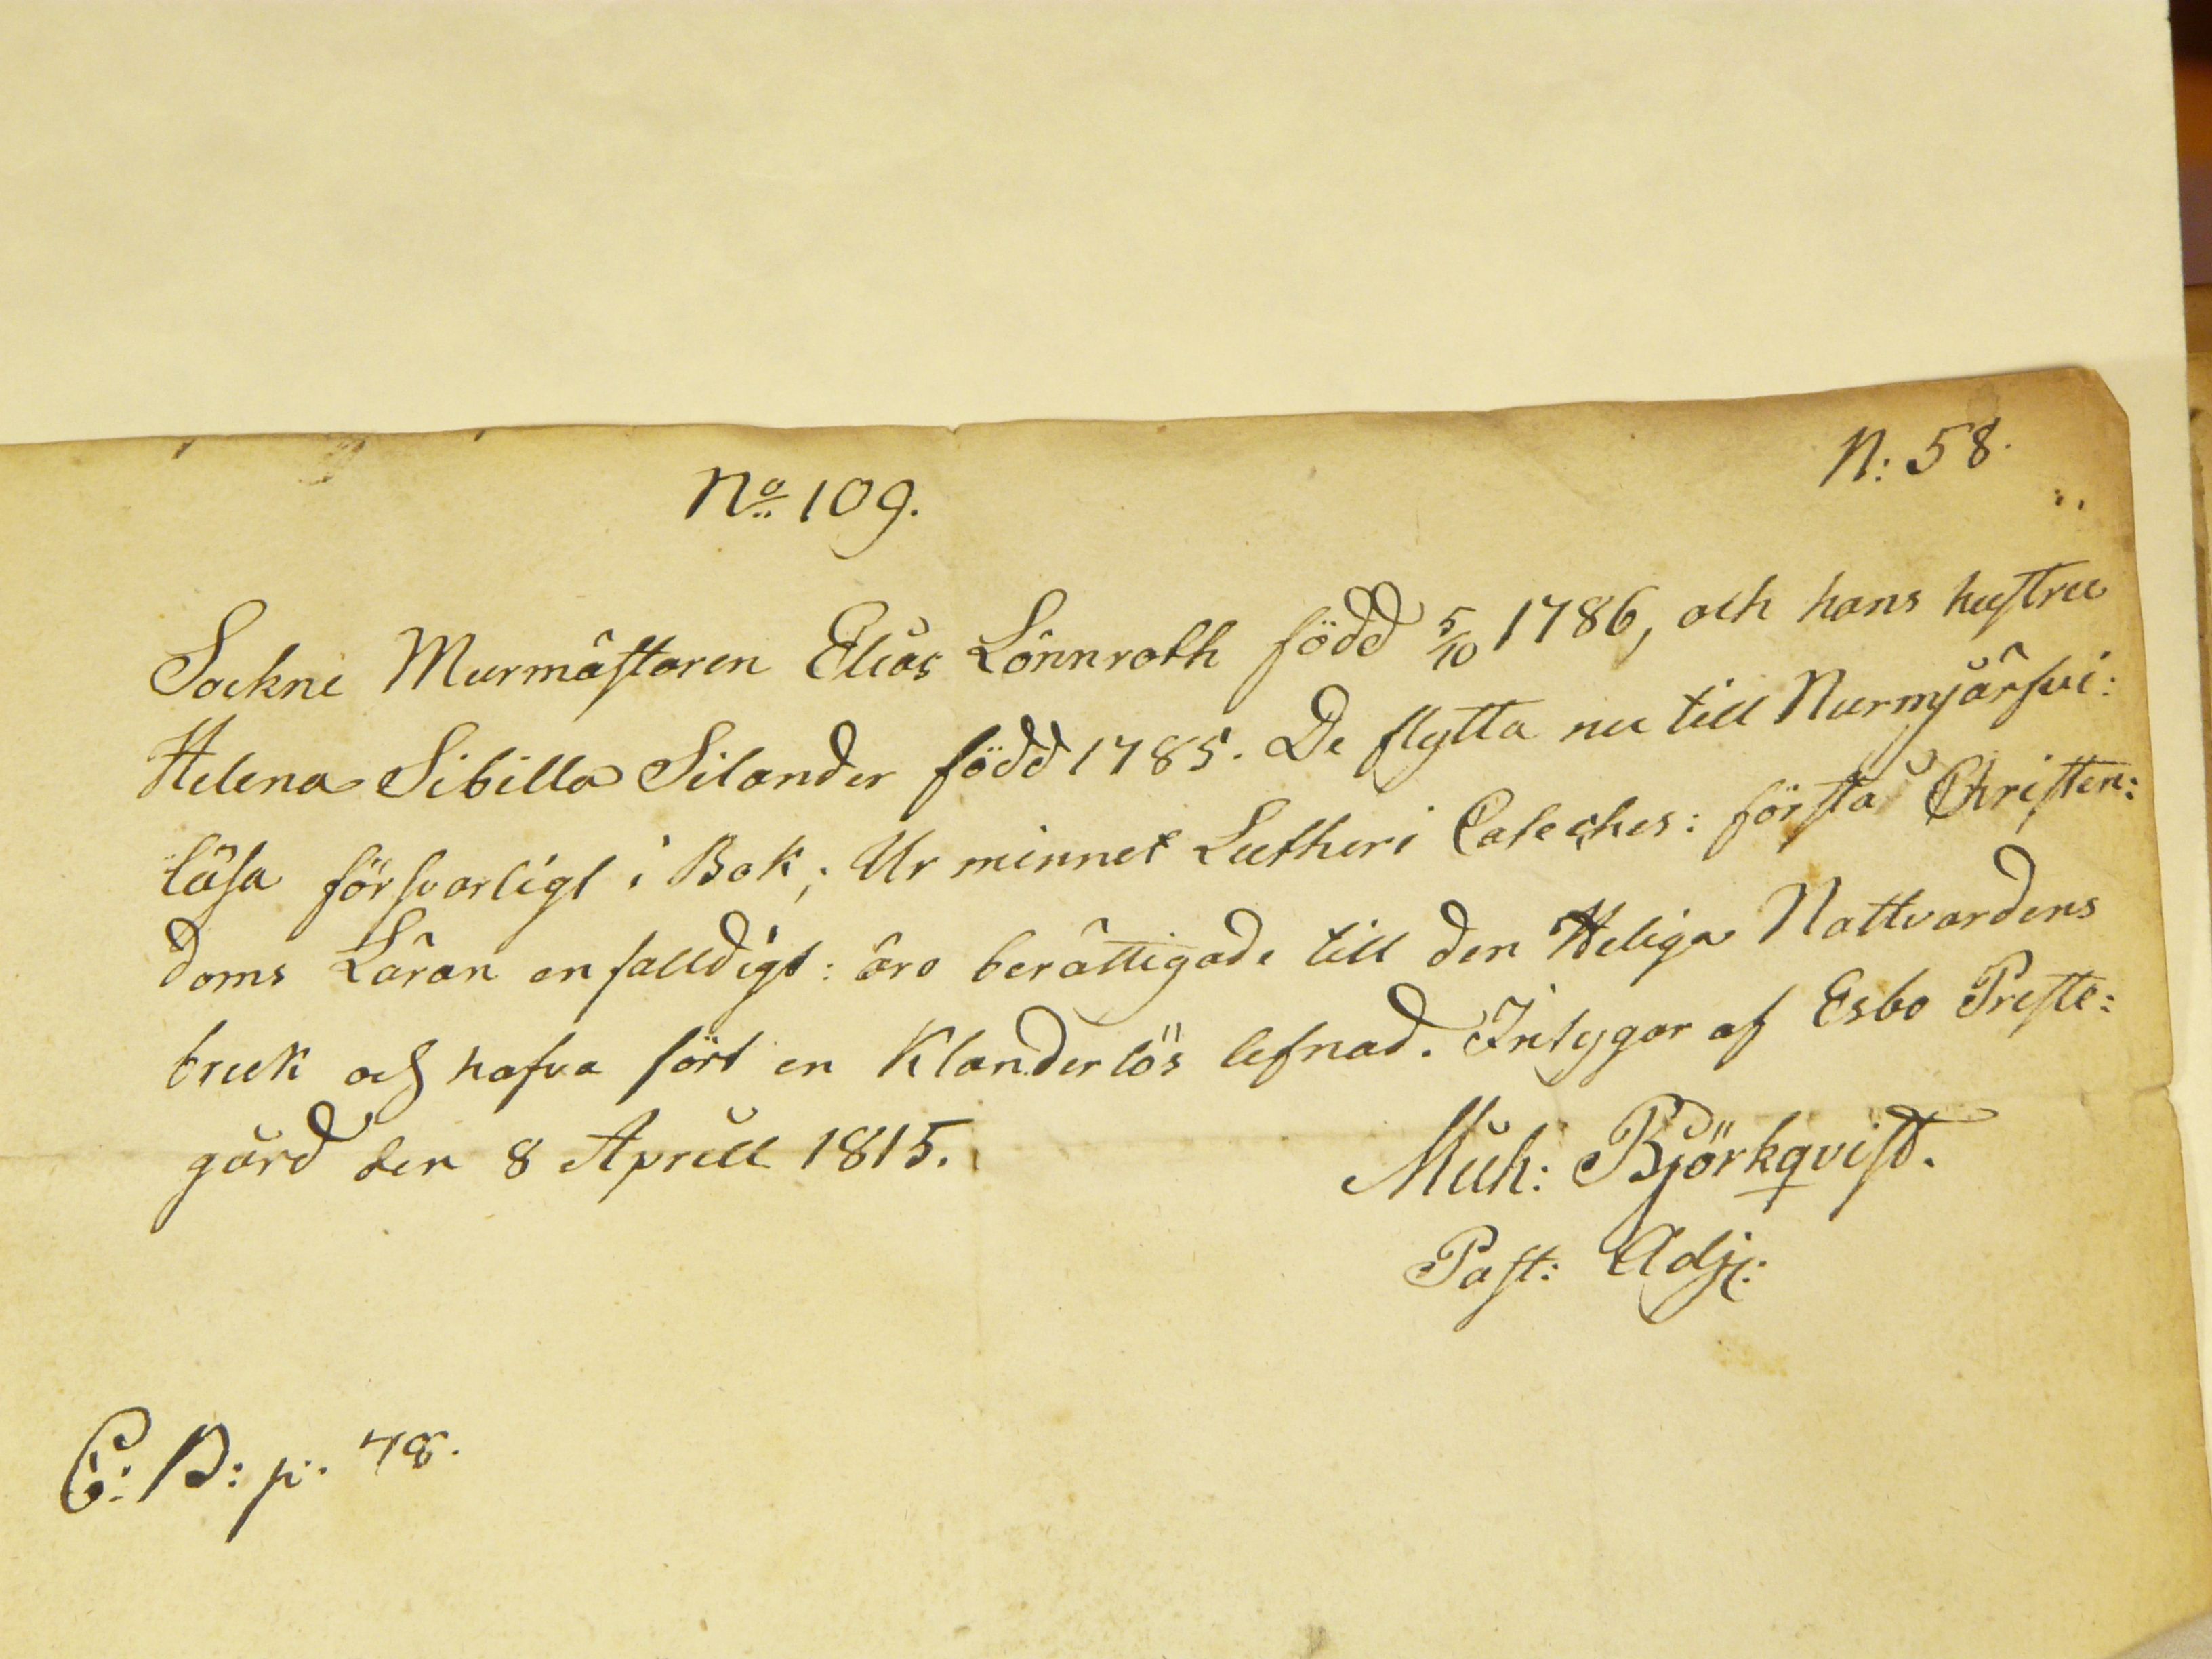 No 109.
N: 58.
Sockne Murmästaren Elias Lönnroth född 5/10 1786, och hans hustru
Helena Sibilla Silander född 1785. De flytta nu till Nurmjärfvi:
läsa försvarligt i Bok; Ur minnet Lutheri Cateches: förstå Christen:
doms Läran enfalldigt: äro berättigade till den Heliga Nattvardens
bruk och hafva fört en Klanderlös lefnad. Intygar af Esbo Preste:
gård den 8 Aprill 1815.
Mich: Björkqvist.
Past: Adj:
C: B: p. 78.